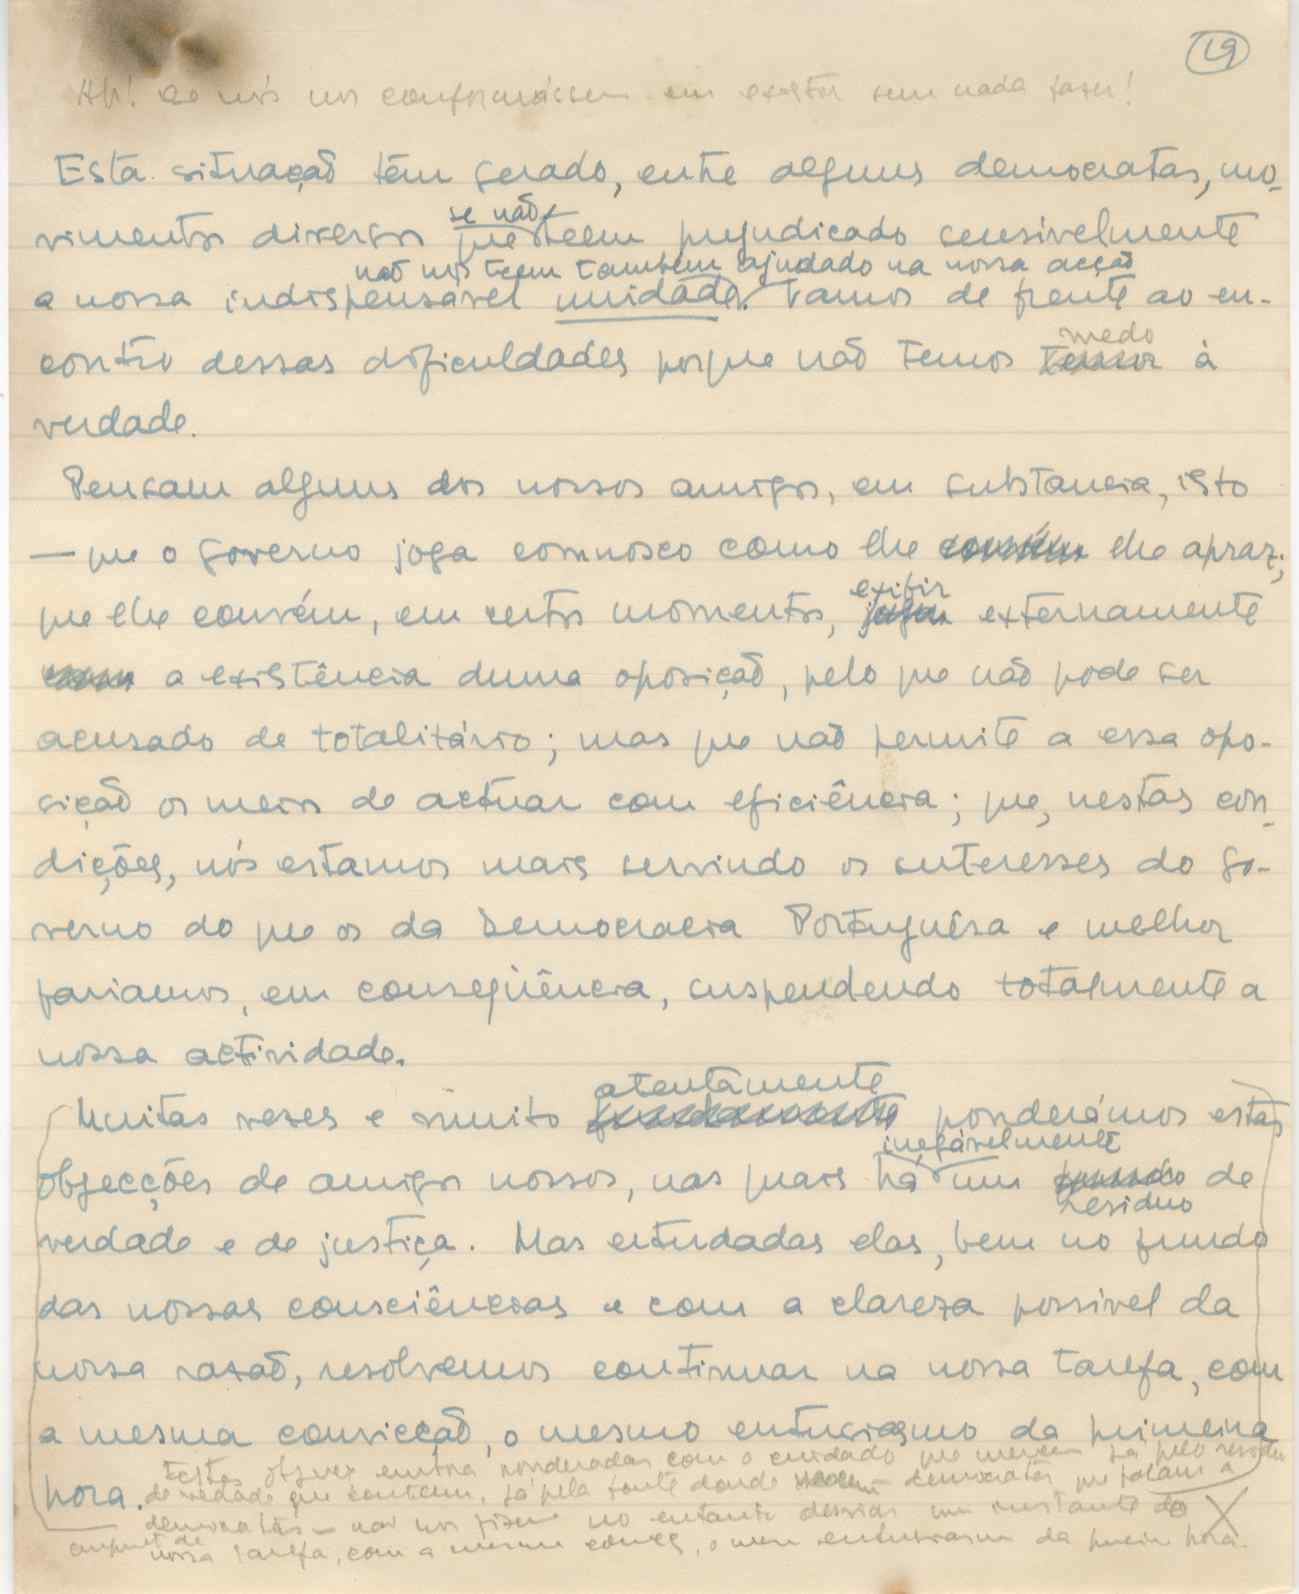 19
Ah! se nós nos conformássemos em existir sem nada fazer!
Esta situação têm gerado, entre alguns democratas, mo-
vimentos diversos que se não teem prejudicado sensivelmente
não nos teem tambem ajudado na nossa acção
a nossa indispensável unidade. Vamos de frente ao en-
contro dessas dificuldades porque não temos temor medo à
verdade.
Pensam alguns dos nossos amigos, em substancia, isto
— que o governo joga comnosco como lhe convém lhe apraz;
que lhe convém, em certos momentos, exibir externamente
a existência duma oposição, pelo que não pode ser
acusado de totalitário; mas que não permite a essa opo-
sição os meios de actuar com eficiência; que, nestas con-
dições, nós estamos mais servindo os interesses do go-
verno do que os da Democracia Portuguêsa e melhor
fariamos, em conseqüência, suspendendo totalmente a
nossa actividade.
Muitas vezes e muito atentamente ponderámos estas
objecções de amigos nossos, nas quais há inegávelmente um residuo de
verdade e de justiça. Mas estudadas elas, bem no fundo
das nossas consciências e com a clareza possivel da
nossa razão, resolvemos continuar na nossa tarefa, com
a mesma convicção, o mesmo entusiasmo da primeira
hora.
Estas embora ponderadas com o cuidado que merecem já pelo residuo
de verdade que contem, já pela fonte donde veem — democratas que falam a
democratas — não nos fizeram no entanto desviar um instante do
cumprimt de nossa tarefa, com a mesma, o mesmo entusiasmo da primeira hora.